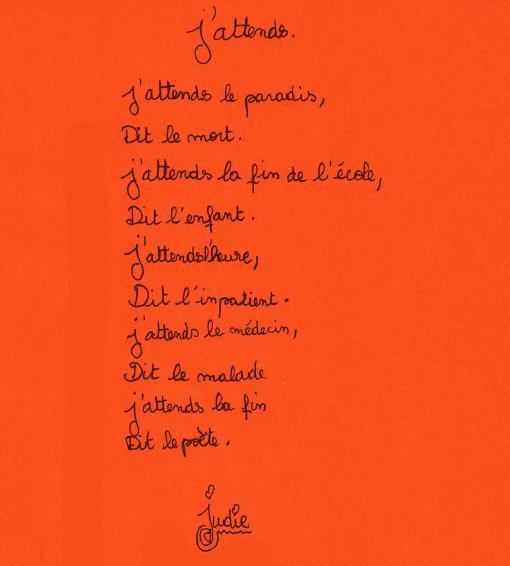 j'attends.
j'attends le paradis,
Dit le mort.
j'attends la fin de l'école,
Dit l'enfant.
j'attends l'heure,
Dit l'inpatient.
j'attends le médecin,
Dit le malade
j'attends la fin
Dit le poète.
Judie